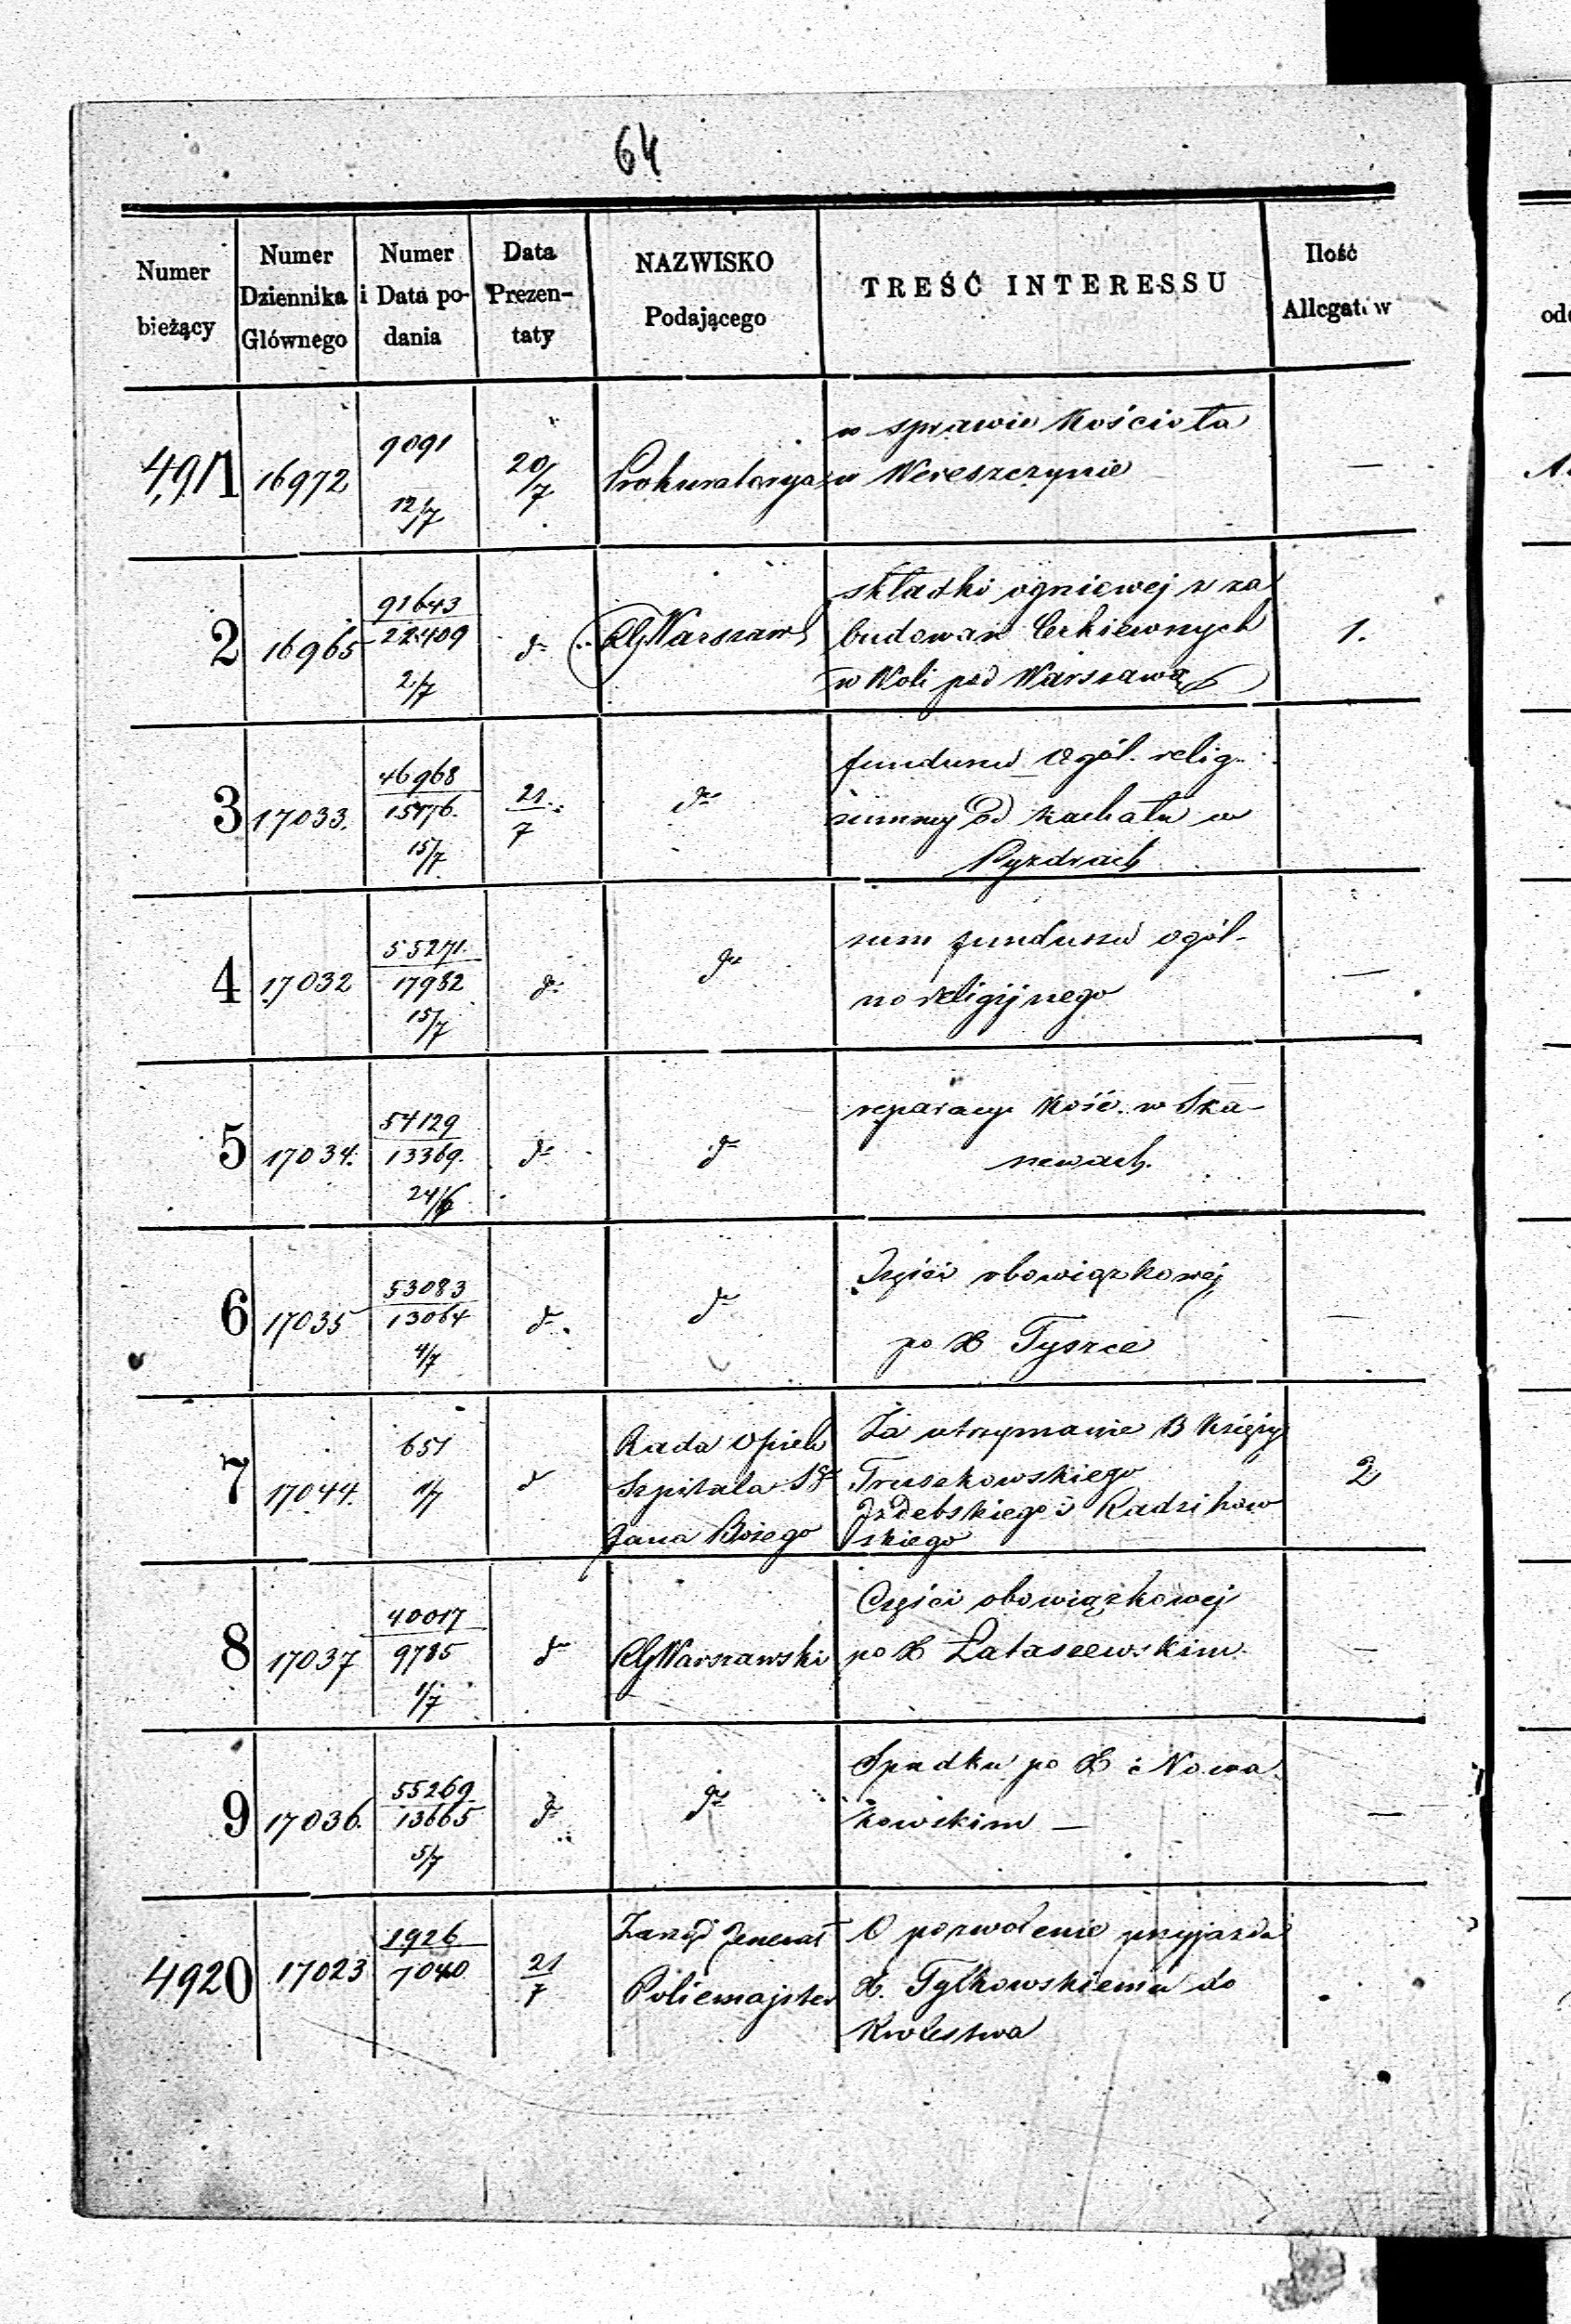 64
Numer bieżący | Numer Dziennika Głównego | Numer i Data podania | Data Prezentaty | NAZWISKO Podającego | TREŚĆ INTERESSU | Ilość Allegatów
4,911 | 16972 | 9091 12/7 | 20/7 | Prokuratorya | w sprawie Kościoła
w Wereszczynie | —
2 | 16965 | 91643 / 22409 2/7 | do | RG Warszaws | składki ogniowej z za
budowań Cerkiewnych
w Woli pod Warszawą | 1.
3 | 17033. | 46968 / 15176. 15/7 | 21/7 | do | funduszu Ogól. relig.
summy od kachału w
Pyzdrach
4 | 17032 | 55271. / 17982 15/7 | do | do | sum funduszu ogól-
no religijnego | —
5 | 17034. | 54129 / 13369. 24/6 | do | do | reparacyi Kość. w Ska-
newach.
6 | 17035 | 53083 / 13064 4/7 | do | do | Części obowiązkowej
po X Tyszce | —
7 | 17044. | 651 1/7 | do | Rada Opiek
Szpitala Sgo
Jana Bożego | Za utrzymanie 3 Księży
Truszkowskiego
Izdebskiego i Radzikow
skiego | 2
8 | 17037 | 40017 / 9785 1/7 | do | RG Warszawski | Części obowiązkowej
po X Łataszewskim. | —
9 | 17036. | 55269. / 13665 5/7 | do | do | Spadku po X Nowa
kowskim — | —
4920 | 17023 | 1926 / 7040 | 21/7 | Zarząd Jenerał
Policmajster | O pozwolenie przyjazdu
X. Tylkowskiemu do
Krolestwa